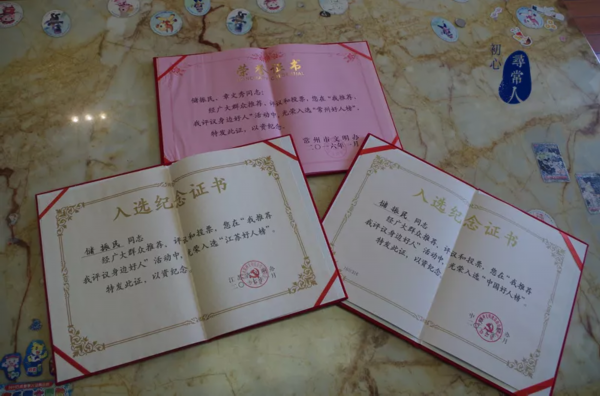 初心
尋常人
荣誉证书
振民、章文秀同志:
经广大群众推荐、评议和投票,您在“我推荐
我评议身边好人”活动中,光荣入选“常州好人榜”,
特发此证,以资纪念。
常州市文明办
二〇一六年一月
入选纪念证书
振民 同志
经广大群众推荐、评议和投票,您在“我推荐
我评议身边好人”活动中,光荣入选“江苏好人榜”,
特发此证,以资纪念。
入选纪念证书
振民 同志
经广大群众推荐、评议和投票,您在“我推荐
我评议身边好人”活动中,光荣入选“中国好人榜”,
特发此证,以资纪念。